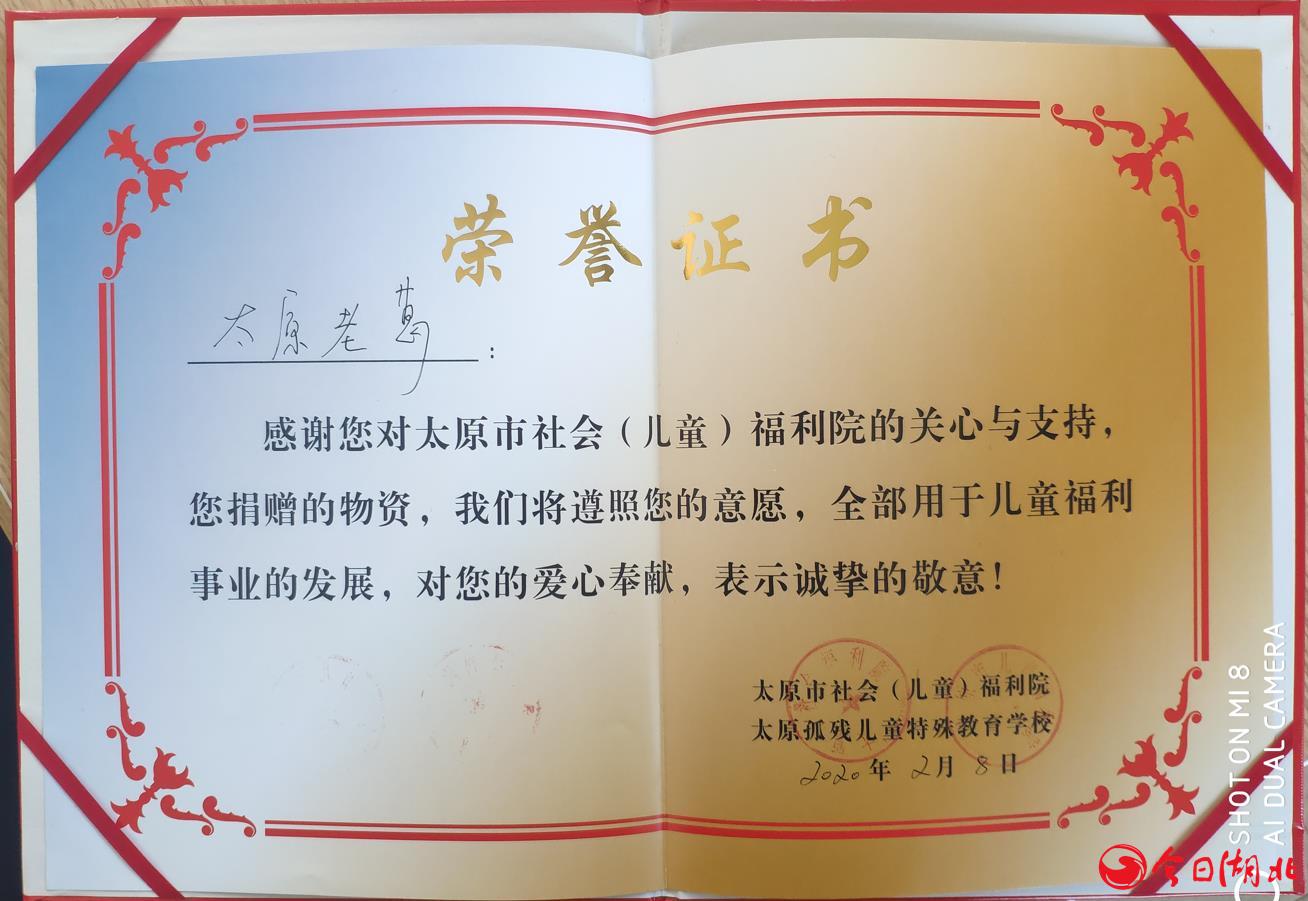 荣誉证书
太原老葛：
感谢您对太原市社会（儿童）福利院的关心与支持，
您捐赠的物资，我们将遵照您的意愿，全部用于儿童福利
事业的发展，对您的爱心奉献，表示诚挚的敬意！
太原市社会（儿童）福利院
太原孤残儿童特殊教育学校
2020年2月8日
SHOT ON MI 8
AI DUAL CAMERA
今日湖北